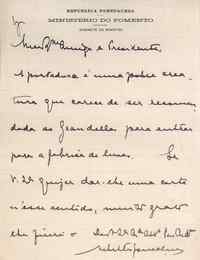 REPUBLICA PORTUGUESA
MINISTERIO DO FOMENTO
GABINETE DO MINISTRO
Meu Exmo Amigo e Presidente
A portadora é uma pobre crea-
tura que carece de ser recomen-
dada ao Grandella para entrar
para a fabrica de lumes. Se
V. Ex. quizer dar-lhe uma carta
n'esse sentido, muito grato
lhe ficará o